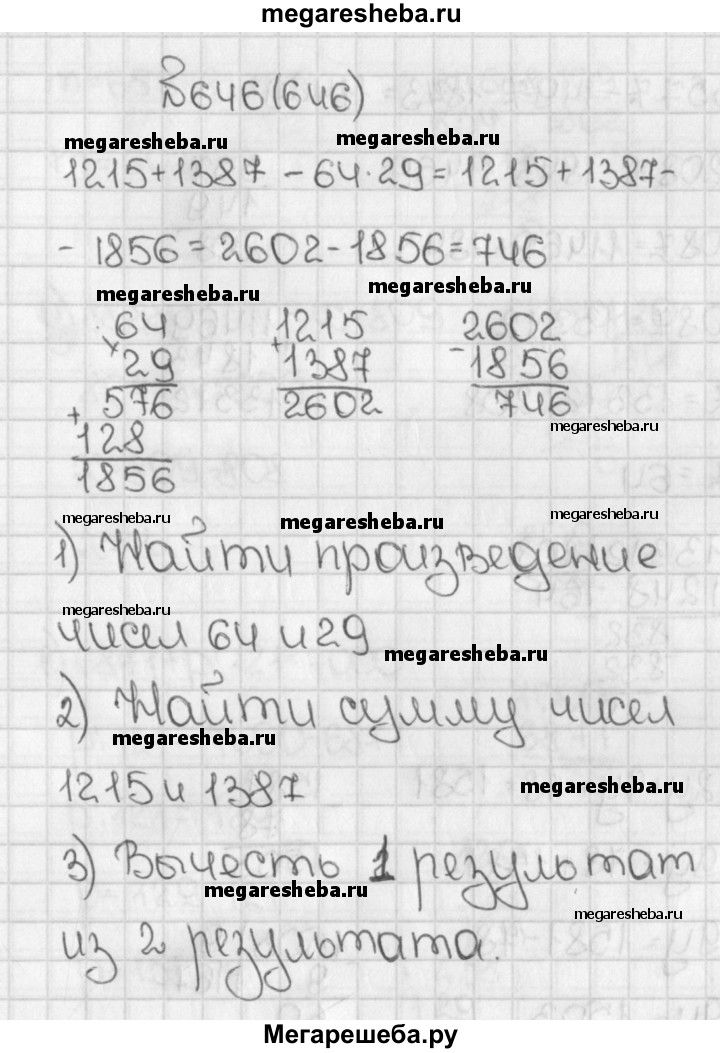 megaresheba.ru
№646(646)
megaresheba.ru megaresheba.ru
1215+1387 - 64·29 = 1215+1387-
- 1856 = 2602 - 1856 = 746
megaresheba.ru megaresheba.ru
64 1215 2602
× 29 + 1387 - 1856
576 2602 746
megaresheba.ru
+ 128
1856
megaresheba.ru megaresheba.ru megaresheba.ru
1) Найти произведение
megaresheba.ru
чисел 64 и 29
megaresheba.ru
2) Найти сумму чисел
megaresheba.ru
1215 и 1387
megaresheba.ru
3) Вычесть 1 результат
megaresheba.ru
megaresheba.ru
из 2 результата.
Мегарешеба.ру